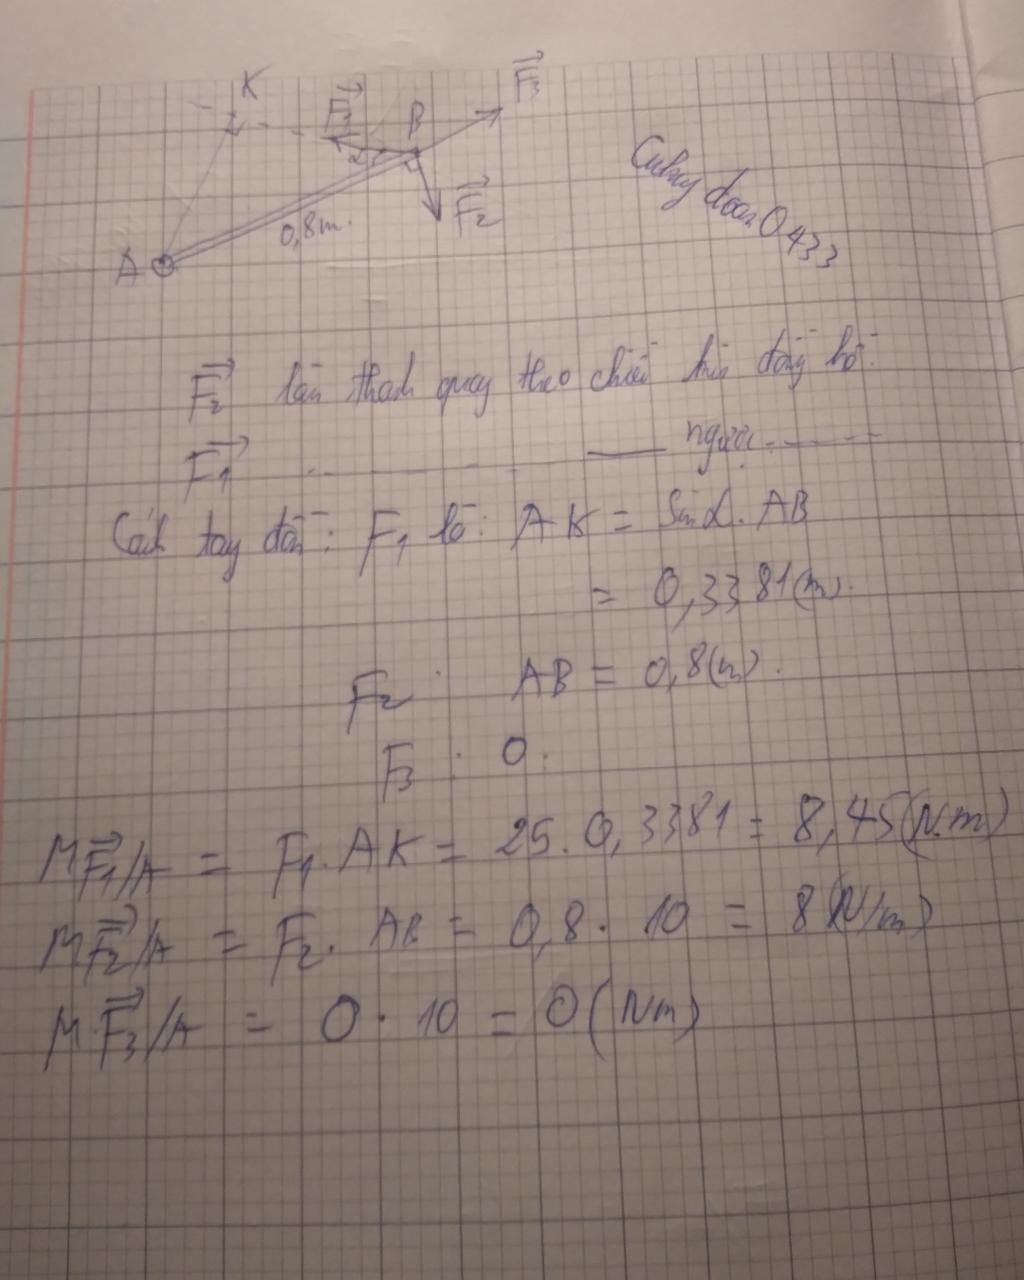 K
F₁
B
F₃
α
F₂
0,8m.
A
0433
F₂ làm thanh quay theo chiều kim đồng hồ.
F₁ ngược
Cánh tay đòn: F₁ là: AK = Sin α. AB
= 0,3381(m).
F₂ : AB = 0,8(m).
F₃ : 0.
M F₁/A = F₁. AK = 25. 0,3381 = 8,45(N.m)
M F₂/A = F₂. AB = 0,8. 10 = 8(N/m)
M F₃/A = 0. 10 = 0(Nm)